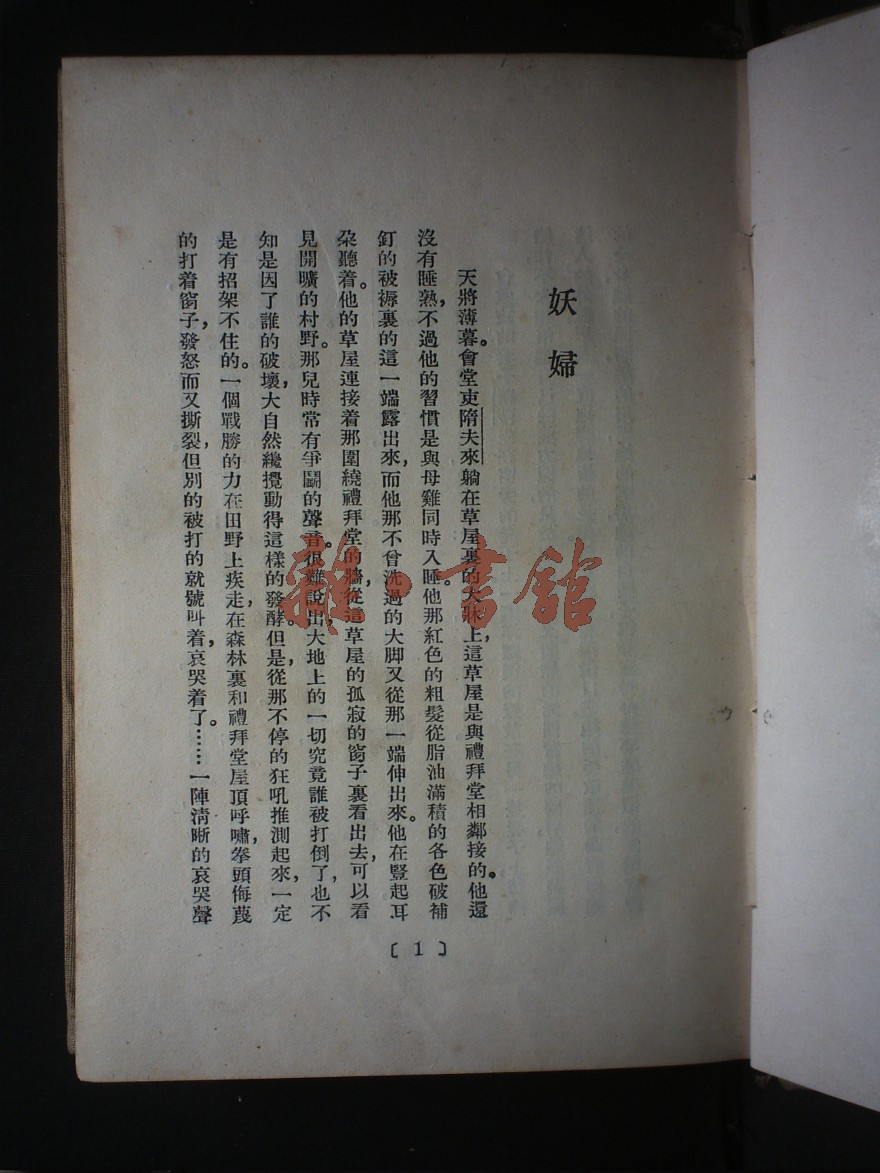 妖婦
天將薄暮。會堂吏隋夫來躺在草屋裏的大牀上，這草屋是與禮拜堂相鄰接的。他還
沒有睡熟，不過他的習慣是與母雞同時入睡。他那紅色的粗髮從脂油滿積的各色破補
釘的被褥裏的這一端露出來，而他那不曾洗過的大脚又從那一端伸出來。他在豎起耳
朶聽着。他的草屋連接着那圍繞禮拜堂的牆，從這草屋的孤寂的窗子裏看出去，可以看
見開曠的村野。那兒時常有爭鬭的聲音。很難說出大地上的一切究竟誰被打倒了，也不
知是因了誰的破壞，大自然纔攪動得這樣的發酵。但是，從那不停的狂吼推測起來，一定
是有招架不住的。一個戰勝的力在田野上疾走，在森林裏和禮拜堂屋頂呼嘯，拳頭侮蔑
的打着窗子，發怒而又撕裂，但別的被打的就號叫着，哀哭着了。……一陣清晰的哀哭聲
〔1〕
雜·書館